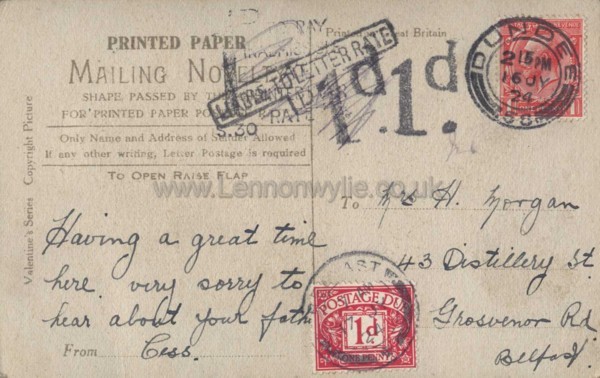 PRINTED PAPER
MAILING NOVEL
SHAPE PASSED BY TH
FOR PRINTED PAPER PO RATE
Only Name and Address of Sender Allowed
If any other writing, Letter Postage is required
TO OPEN RAISE FLAP
LIABLE TO LETTER RATE
9.30
Printed Great Britain
1d. 1d.
DUNDEE
2 15 PM
16 JY
24
Copyright Picture
Valentine's Series
www.Lennonwylie.co.uk
Having a great time
here very sorry to
hear about your fath
From Cess.
To Mrs H. Morgan
43 Distillery St
Grosvenor Rd
Belfast
POSTAGE DUE
1d
ONE PENNY